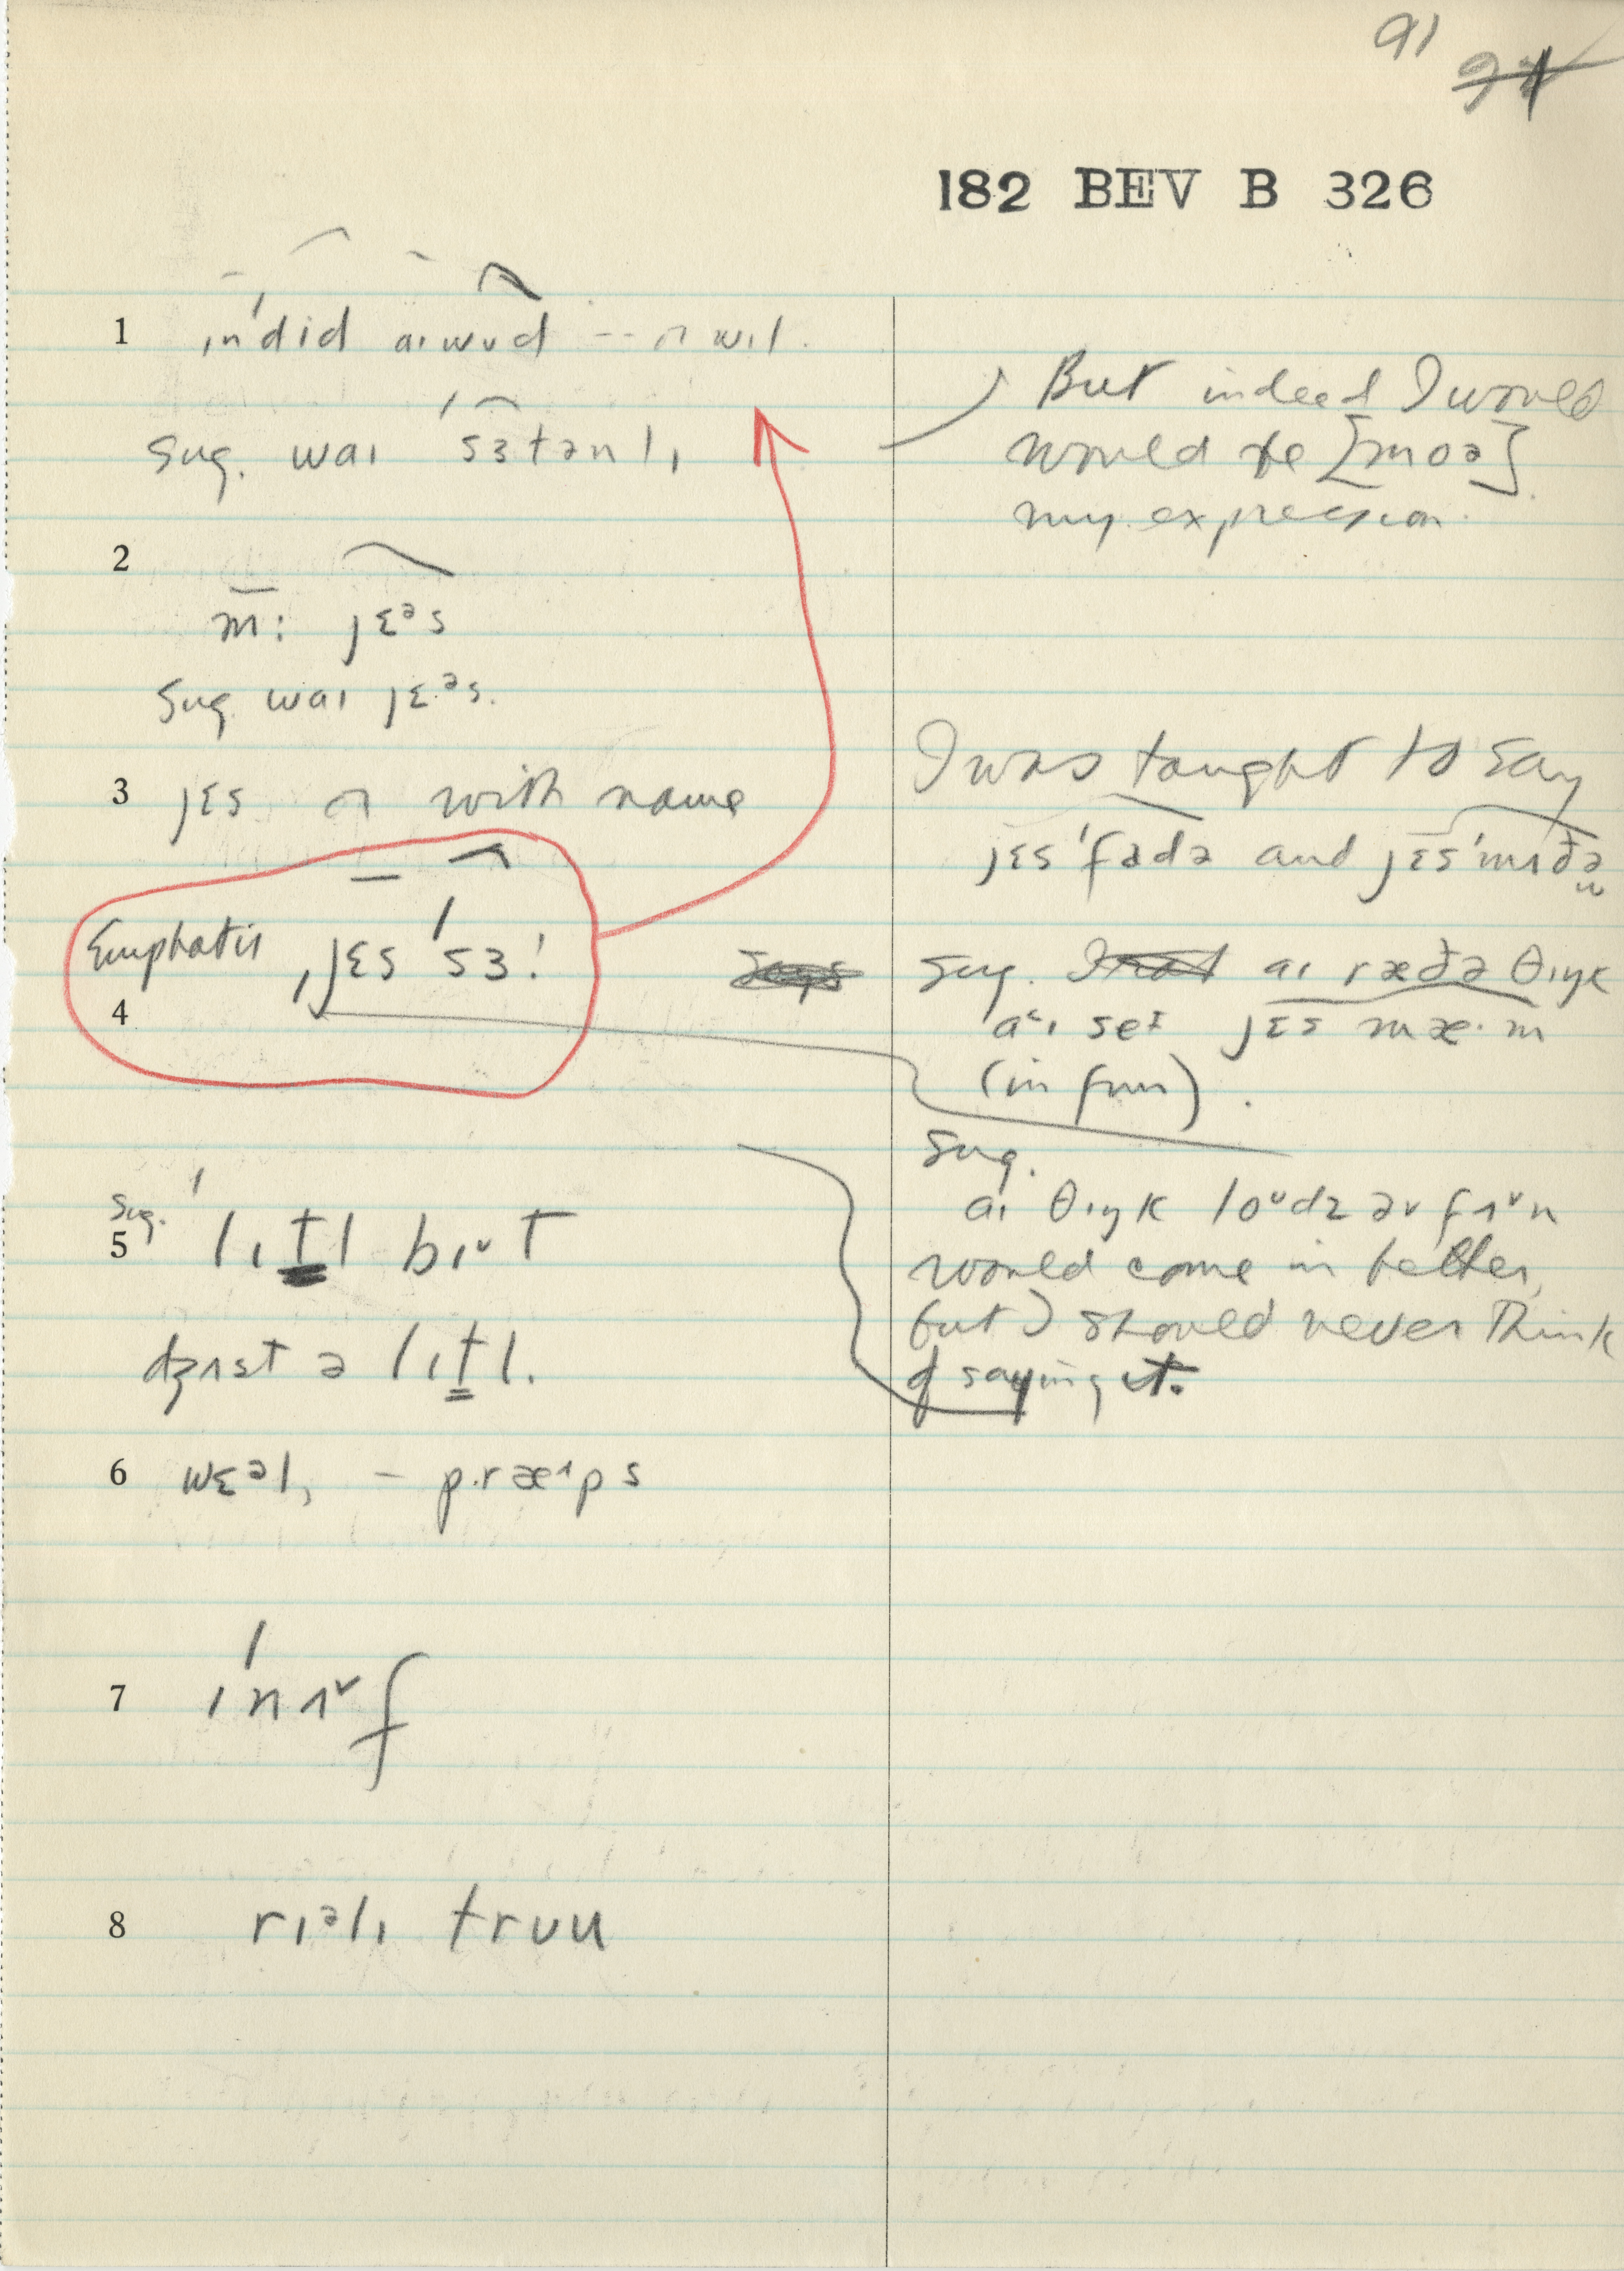 91
182 BEV B 326
1 ɪn'did aɪwʊd -- ɒ wɪl.
Sug. waɪ 'sɜtənlɪ
But indeed I would
would be [moə]
my expression.
2
m: jɛᵊs
Sug waɪ jɛᵊs.
3 jɛs or with name
I was taught to say
jɛs 'fadə and jɛs 'mʌðə
Emphatic ˌjɛs 'sɜ!
4
Sug. aɪ ræðə θɪŋk
aɪ seɪ jɛs mæ·m
(in fun).
Sug.
aɪ θɪŋk loʊdz əv fʌn
would come in better,
but I should never think
of saying it.
Sug.
5 'lɪtl bɪˇt
dʒʌst ə lɪtl.
6 wɛᵊl, – præˑps
7 ɪ'nʌˇf
8 rɪᵊlɪ trʊu